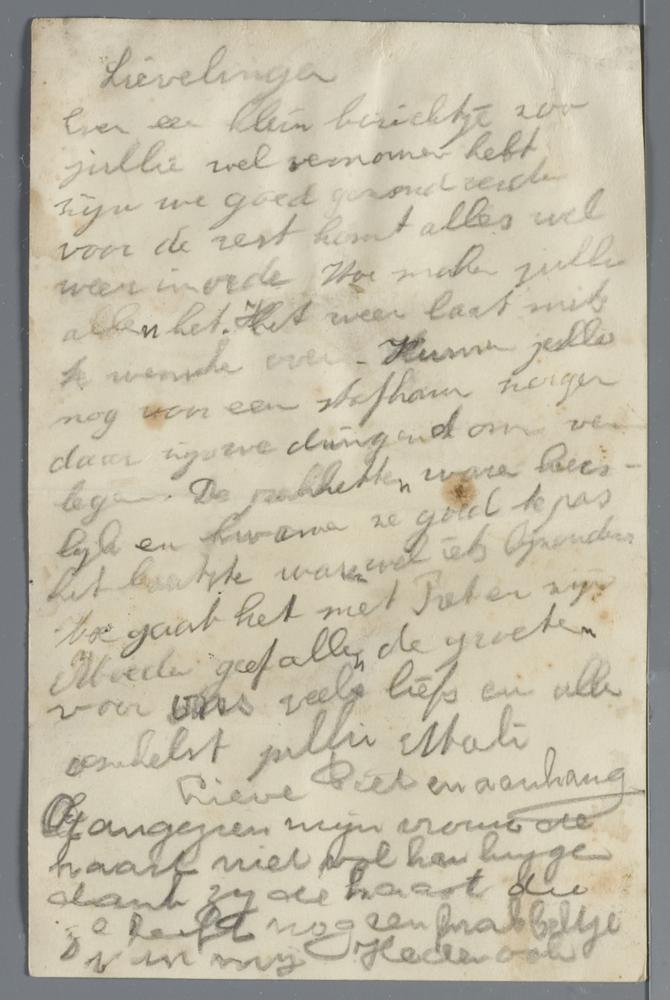 Lievelingen
Even een klein berichtje zoo
jullie wel vernomen hebt
zijn we goed gezond verder
voor de rest komt alles wel
weer in orde Hoe maken jullie
allen het. Het weer laat niets
te wensche over. Kunnen jullie
nog voor een stofkam zorgen
daar zijn we dringend om ver
legen. De pakketten waren heer-
lijk en kwamen ze goed te pas
het laatste was wel iets bijzonders
hoe gaat het met Piet en zijn
Moeder geef allen de groeten
voor ons veel liefs en alle
omhelst jullie Mali
Lieve Piet en aanhang
Aangezien mijn vrouw de
kaart niet vol kan krijgen
dank zij de haast die
ze heeft nog een krabbeltje
v